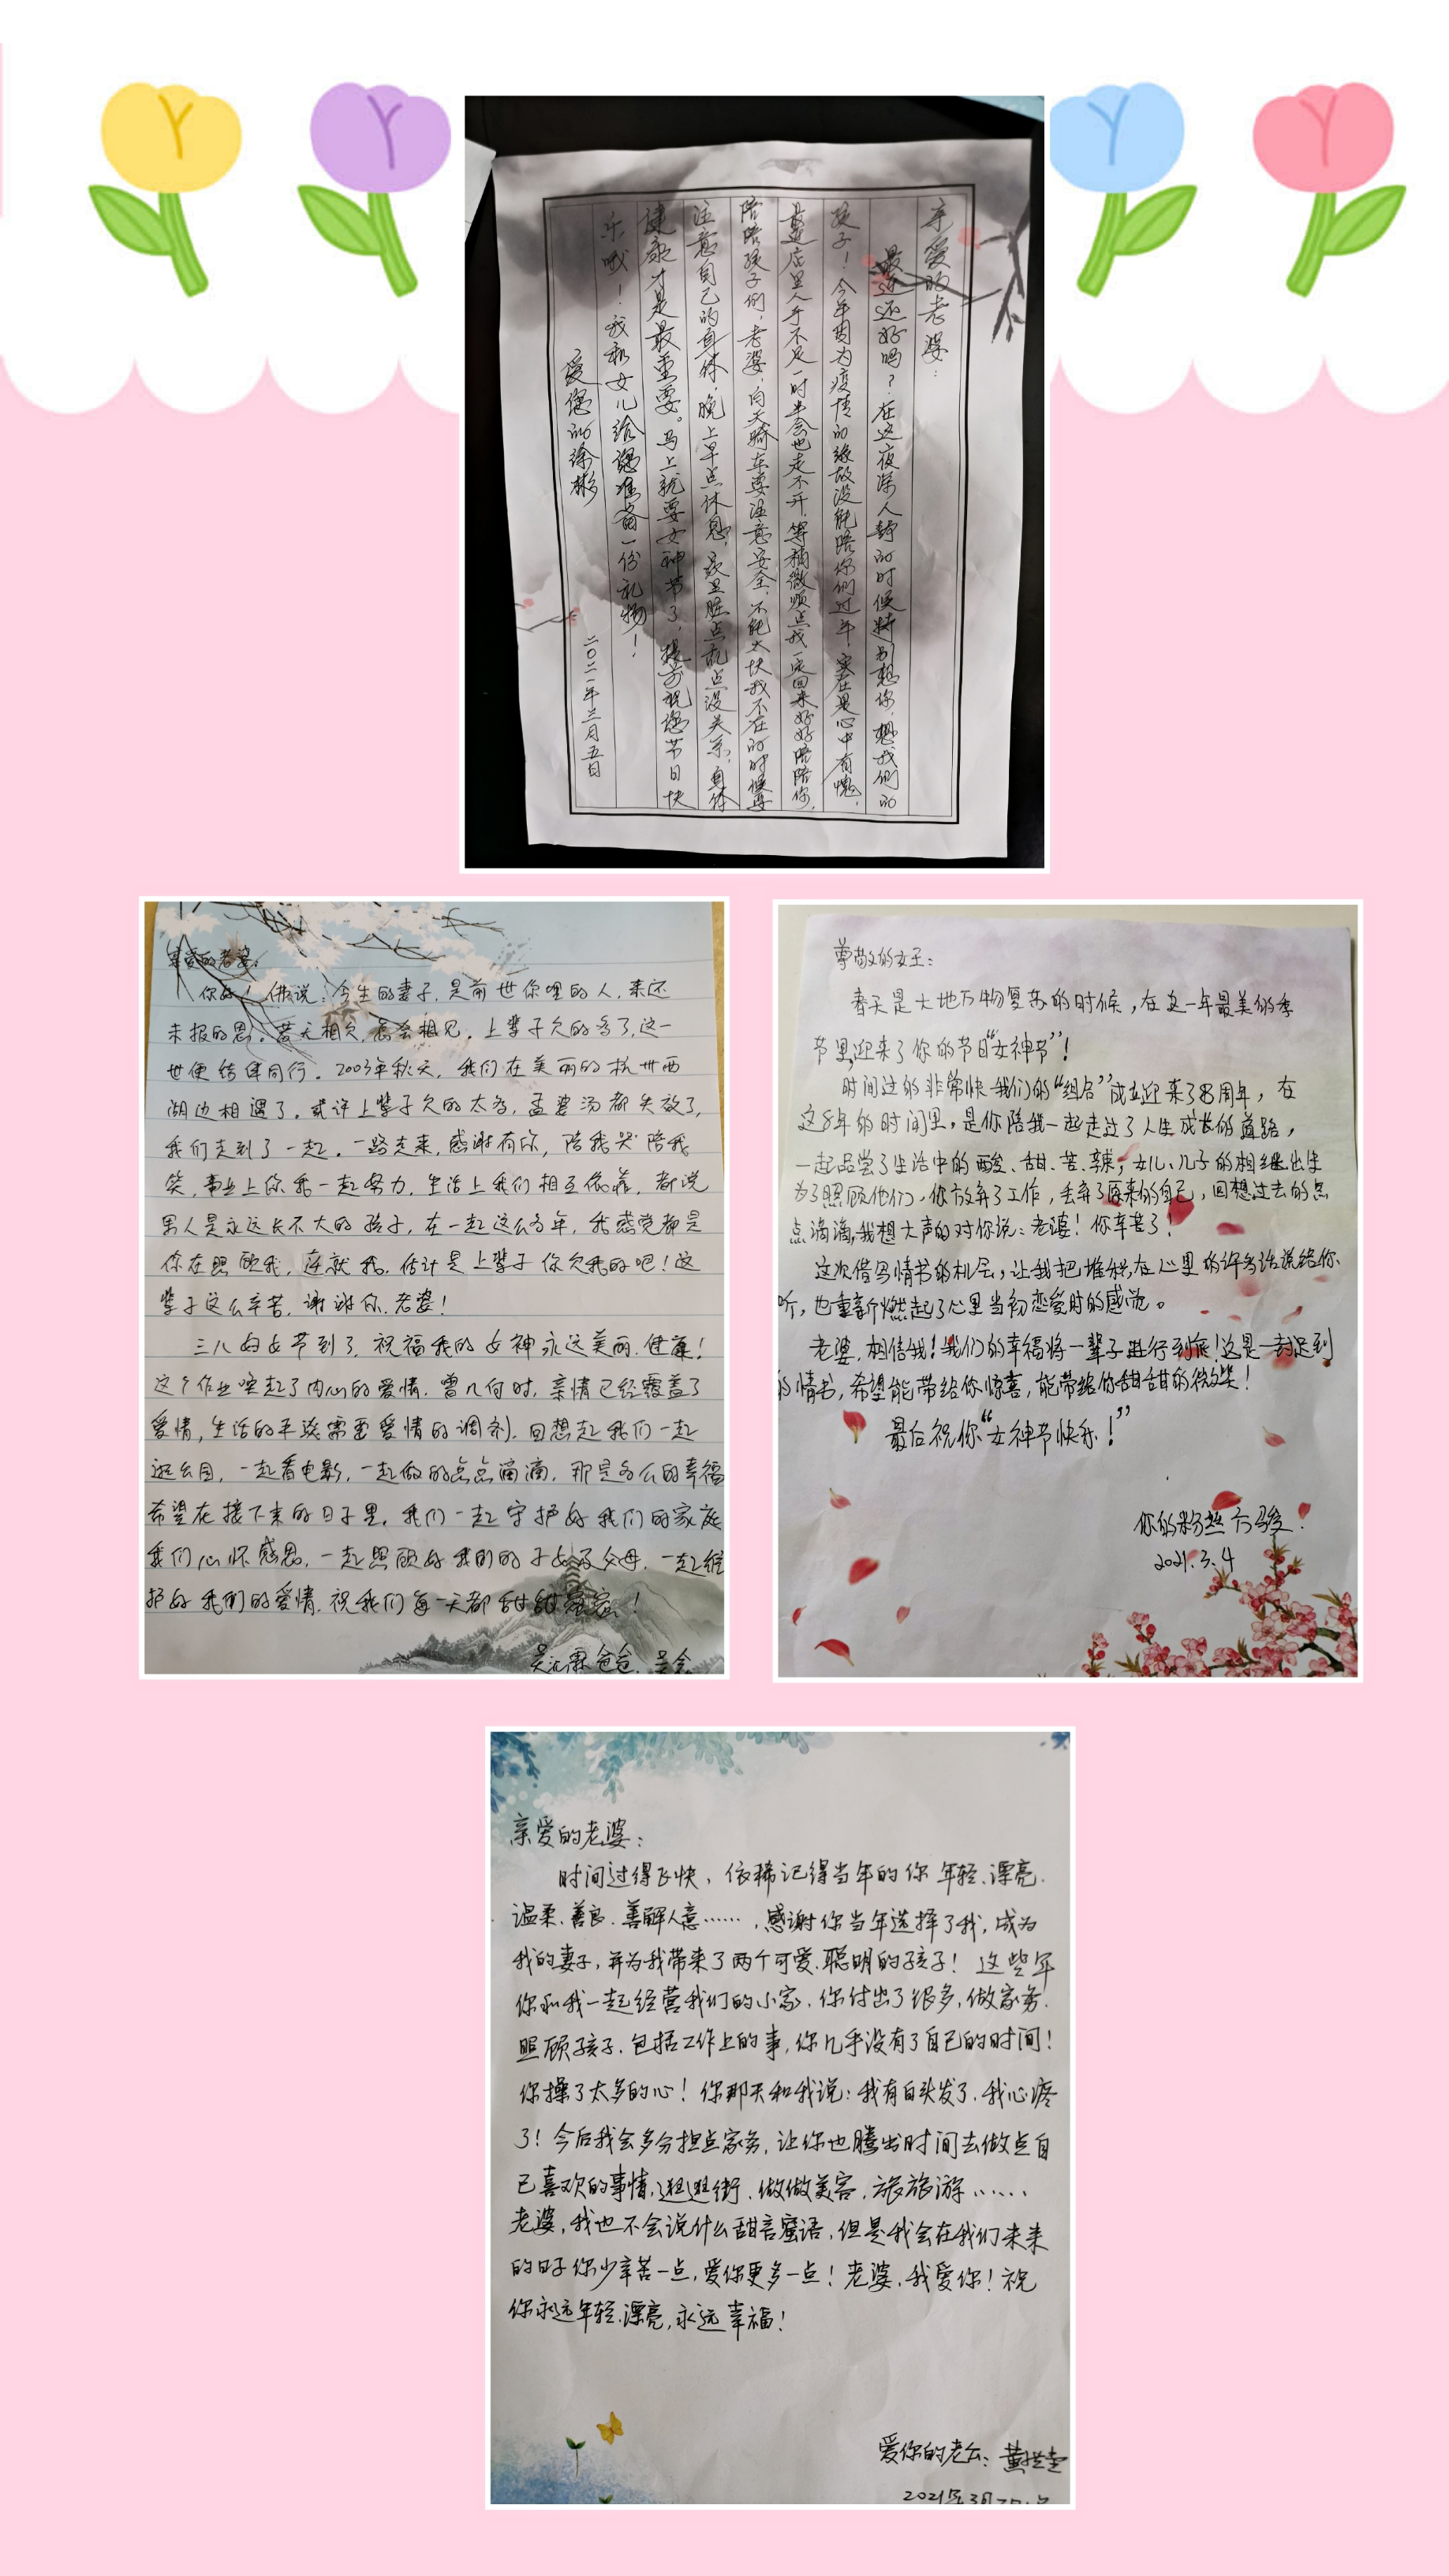 亲爱的老婆：
最近还好吗？在这夜深人静的时候特别想你，想我们的
孩子！今年因为疫情的缘故没能陪你们过年，实在是心中有愧，
最近店里人手不足一时半会也走不开，等稍微顺点我一定回来好好陪陪你，
陪陪孩子们，老婆，白天骑车要注意安全，不能太快我不在的时候要
注意自己的身体，晚上早点休息，家里脏点乱点没关系，身体
健康才是最重要。马上就要女神节了，提前祝您节日快
乐哦！我和女儿给您准备一份礼物！
爱您的徐彬
二〇二一年三月五日
亲爱的老婆：
你好！佛说：今生的妻子，是前世你埋的人，来还
未报的恩。若无相欠，怎会相见。上辈子欠的多了，这一
世便结伴同行。2003年秋天，我们在美丽的杭州西
湖边相遇了。或许上辈子欠的太多，孟婆汤都失效了，
我们走到了一起。一路走来，感谢有你，陪我哭陪我
笑，事业上你我一起努力，生活上我们相互依靠，都说
男人是永远长不大的孩子，在一起这么多年，我感觉都是
你在照顾我，迁就我，估计是上辈子你欠我的吧！这
辈子这么辛苦，谢谢你，老婆！
三八妇女节到了，祝福我的女神永远美丽，健康！
这个作业唤起了内心的爱情，曾几何时，亲情已经覆盖了
爱情，生活的平淡需要爱情的调剂，回想起我们一起
逛公园，一起看电影，一起做的点点滴滴，那是多么的幸福
希望在接下来的日子里，我们一起守护好我们的家庭
我们心怀感恩，一起照顾好我们的子女及父母，一起维
护好我们的爱情，祝我们每一天都甜甜蜜蜜！
爸爸
尊敬的女王：
春天是大地万物复苏的时候，在这一年最美的季
节里，迎来了你的节日“女神节”！
时间过的非常快我们的“组合”成立迎来了8周年，在
这8年的时间里，是你陪我一起走过了人生成长的道路，
一起品尝了生活中的酸、甜、苦、辣，女儿、儿子的相继出生
为了照顾他们，你放弃了工作，丢弃了原来的自己，回想过去的点
点滴滴，我想大声的对你说：老婆！你辛苦了！
这次借写情书的机会，让我把堆积在心里的许多话说给你
听，也重新燃起了心里当初恋爱时的感觉。
老婆，相信我！我们的幸福将一辈子进行到底！这是一封迟到
的情书，希望能带给你惊喜，能带给你甜甜的微笑！
最后祝你“女神节快乐！”
你的粉丝 方骏
2021.3.4
亲爱的老婆：
时间过得飞快，依稀记得当年的你年轻、漂亮、
温柔、善良、善解人意……，感谢你当年选择了我，成为
我的妻子，并为我带来了两个可爱、聪明的孩子！这些年
你和我一起经营我们的小家，你付出了很多，做家务、
照顾孩子、包括工作上的事，你几乎没有了自己的时间！
你操了太多的心！你那天和我说：我有白头发了，我心疼
了！今后我会多分担点家务，让你也腾出时间去做点自
己喜欢的事情，逛逛街、做做美容，旅旅游……
老婆，我也不会说什么甜言蜜语，但是我会在我们未来
的日子你少辛苦一点，爱你更多一点！老婆，我爱你！祝
你永远年轻、漂亮，永远幸福！
爱你的老公：黄
2021年3月